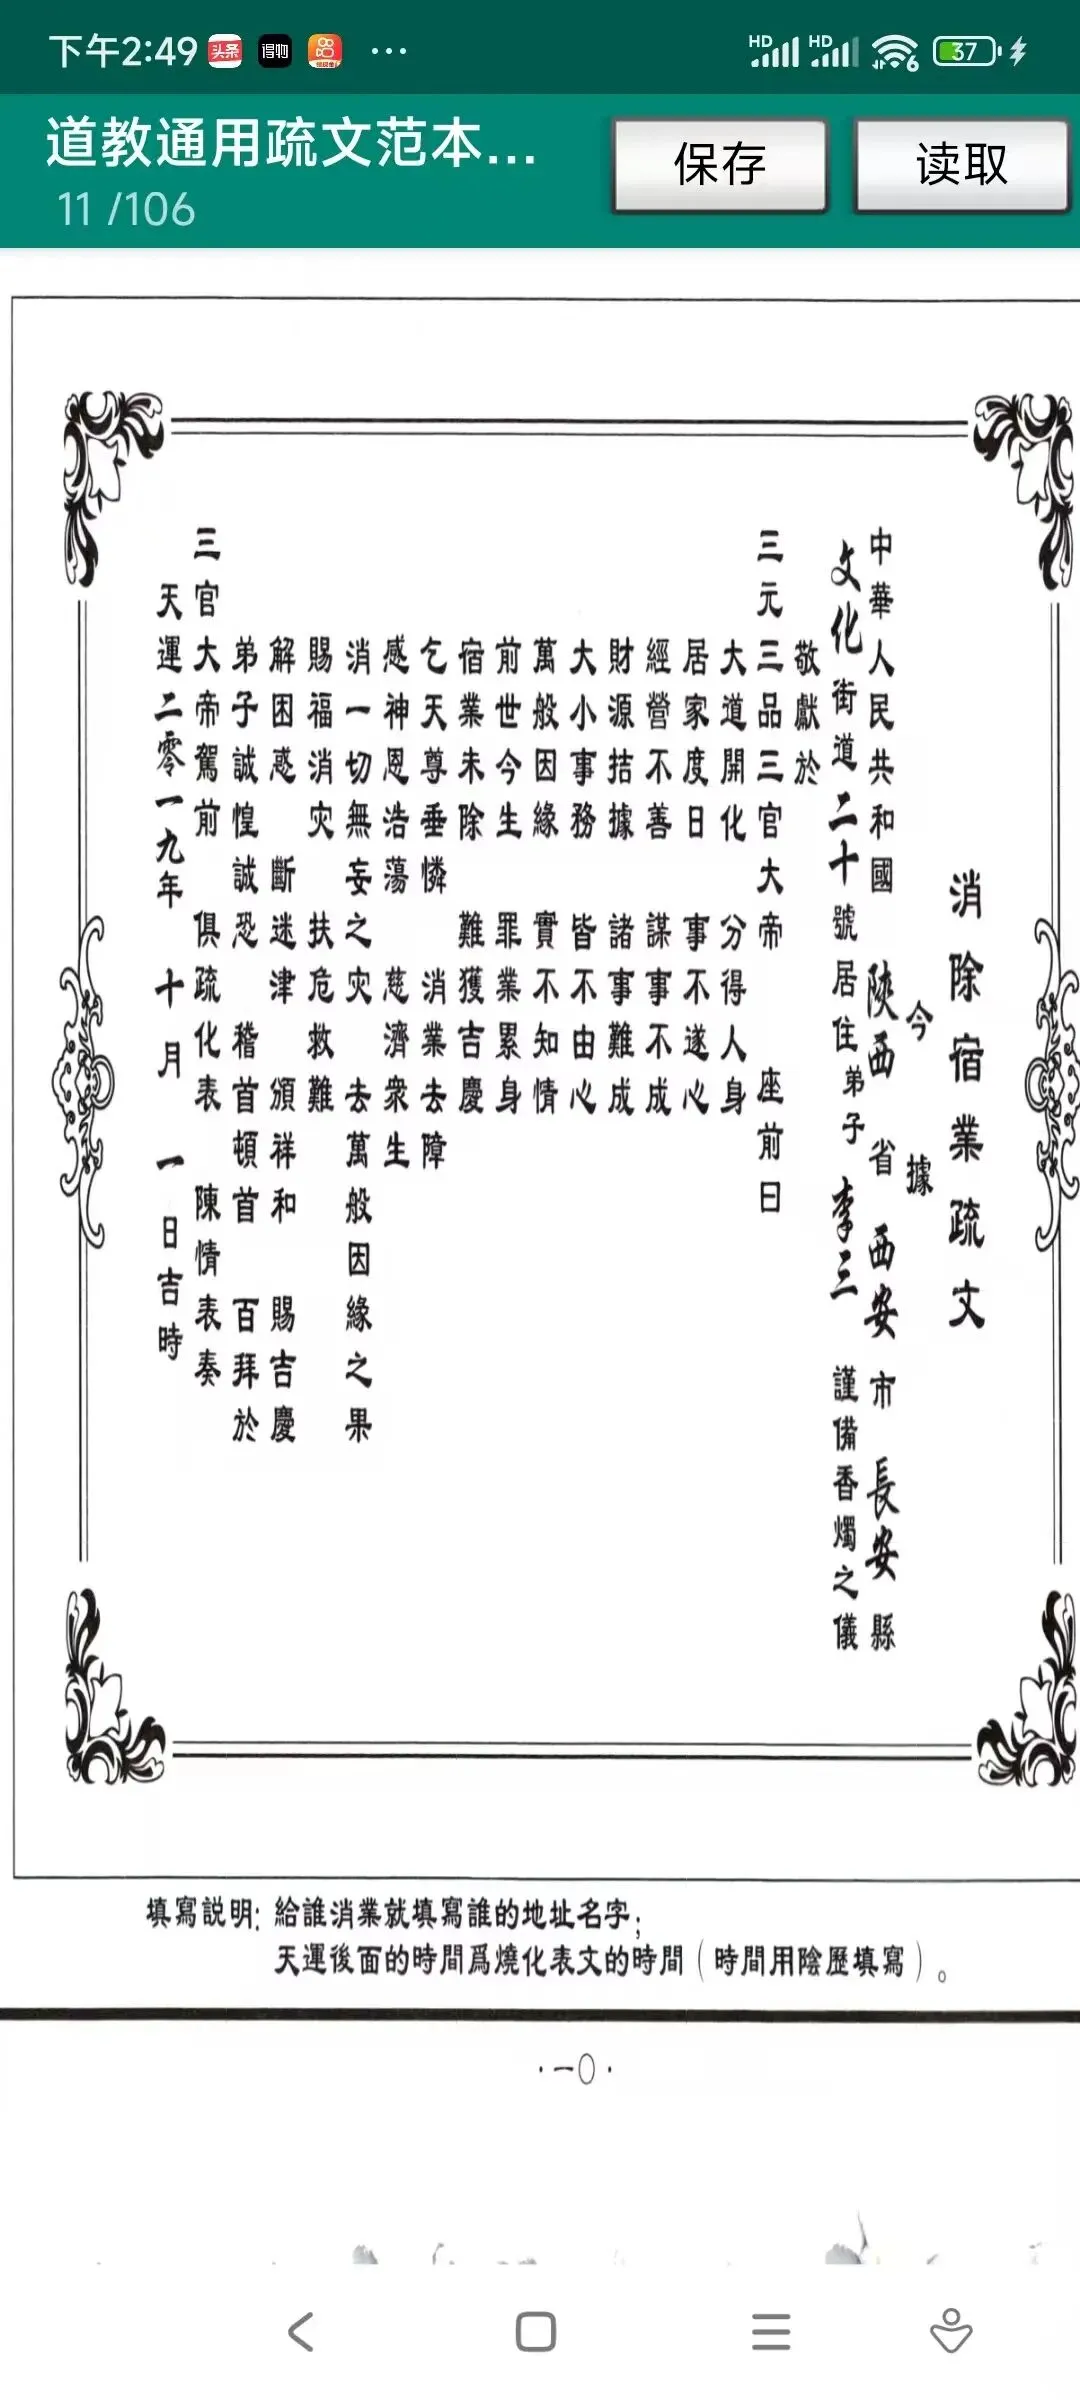 下午2:49 头条 得物 ... HD HD 6 37
道教通用疏文范本...
11 /106
保存
读取
消除宿業疏文
今 據
中華人民共和國 陝西 省 西安 市 長安 縣
文化 街道 二十 號 居住 弟子 李三 謹備香燭之儀
敬獻於
三元三品三官大帝 座前曰
大道開化 分得人身
居家度日 事不遂心
經營不善 謀事不成
財源拮據 諸事難成
大小事務 皆不由心
萬般因緣 實不知情
前世今生 罪業累身
宿業未除 難獲吉慶
乞天尊垂憐 消業去障
感神恩浩蕩 慈濟衆生
消一切無妄之灾 去萬般因緣之果
賜福消灾 扶危救難
解困惑 斷迷津 頒祥和 賜吉慶
弟子誠惶誠恐 稽首頓首 百拜於
三官大帝駕前 俱疏化表 陳情表奏
天運二零一九年 十月 一 日吉時
填寫説明: 給誰消業就填寫誰的地址名字;
天運後面的時間爲燒化表文的時間（時間用陰歷填寫）。
·一〇·